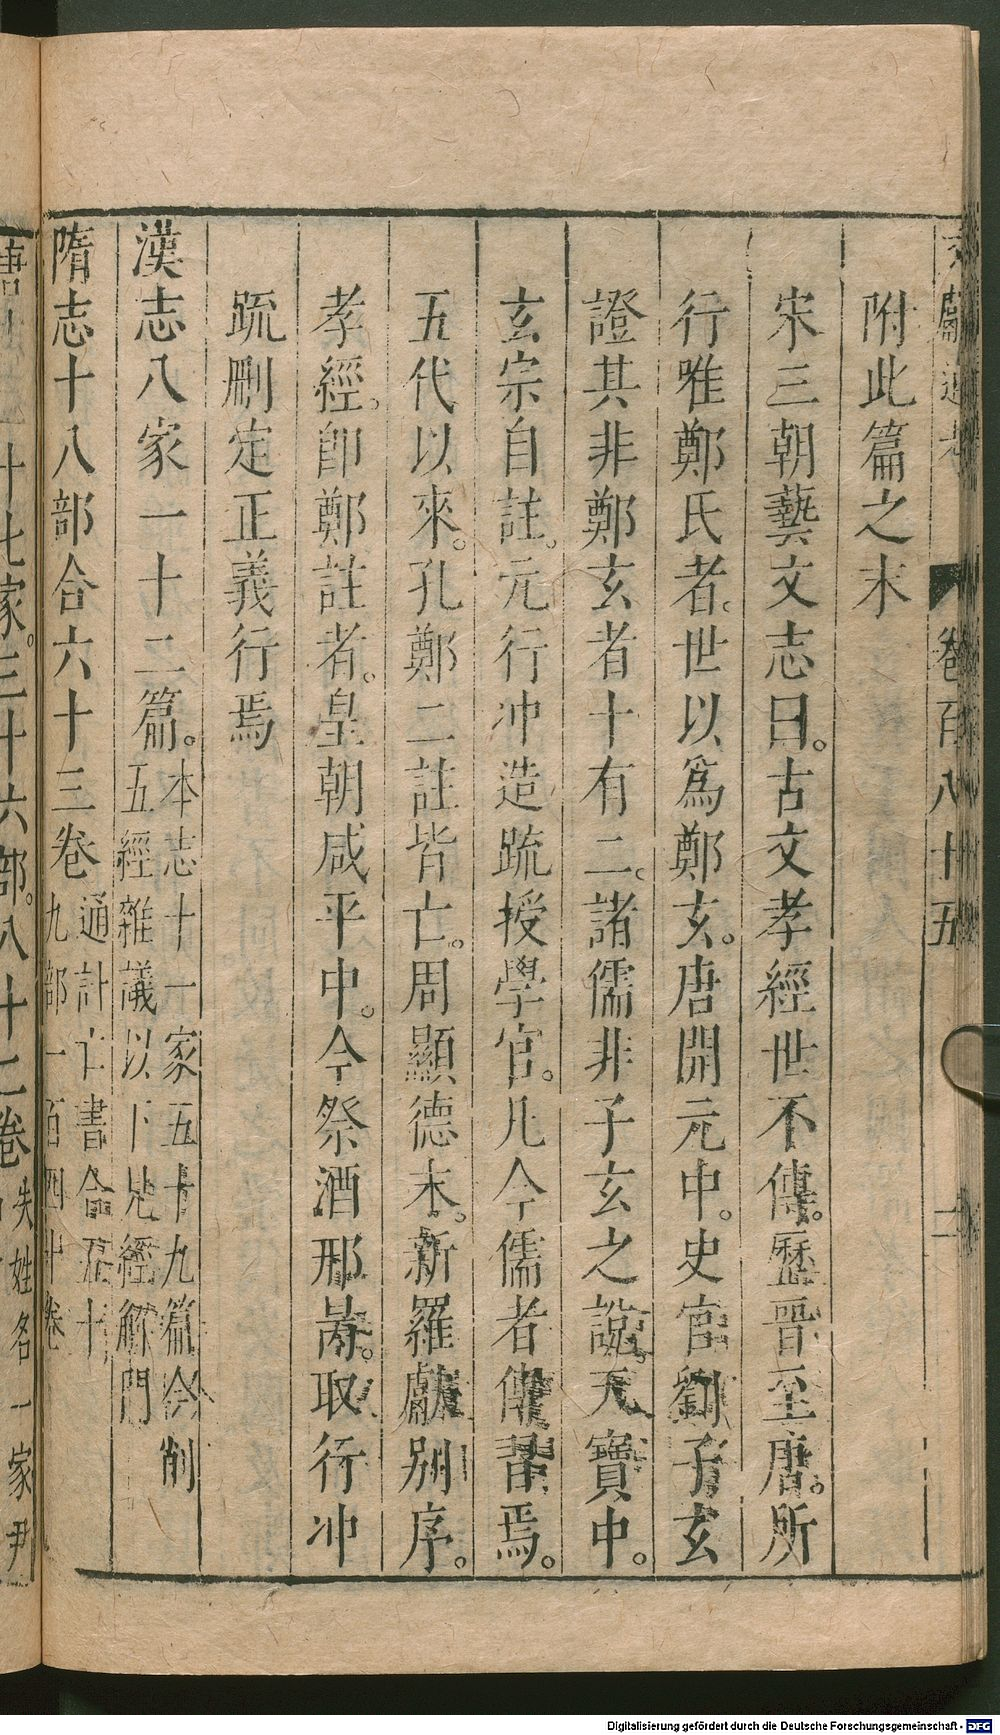 卷百八十五
附此篇之末
宋三朝藝文志曰。古文孝經世不傳。歷晉至唐。所
行唯鄭氏者。世以爲鄭玄。唐開元中。史官劉子玄
證其非鄭玄者十有二。諸儒非子玄之說。天寶中。
玄宗自註。元行沖造疏授學官。凡今儒者傳習焉。
五代以來。孔鄭二註皆亡。周顯德末。新羅獻別序。
孝經。卽鄭註者。皇朝咸平中。今祭酒邢昺。取行沖
疏刪定正義行焉
漢志八家一十二篇。本志十一家五十九篇今削
五經雜議以下見經解門
隋志十八部合六十三卷通計亡書合五十
九部一百四十卷
十七家。三十六部。八十二卷失姓名一家尹
Digitalisierung gefördert durch die Deutsche Forschungsgemeinschaft - DFG